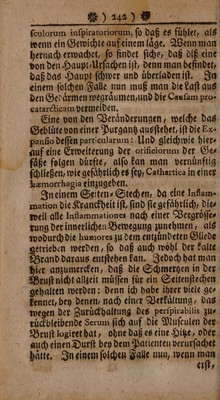 ( 242 )
sculorum inspiratoriorum, so daß es fühlet, als
wenn ein Gewichte auf einem läge. Wenn man
hernach erwachet, so findet sichs, daß diß eine
von den Haupt-Ursachen ist, denn man befindet,
daß das Haupt schwer und überladen ist. In
einem solchen Fall nun muß man die Last aus
den Gedärmen wegräumen, und die Causam pro-
catarcticam vermeiden.
Eine von den Veränderungen, welche das
Geblüte von einer Purgantz ausstehet, ist die Ex-
pansio dessen particularum: Und gleichwie hier-
auf eine Erweiterung der orificiorum der Ge-
fäße folgen dürfte, also kan man vernünftig
schließen, wie gefährlich es sey, Cathartica in einer
hæmorrhagia einzugeben.
In einem Seiten-Stechen, da eine Inflam-
mation die Kranckheit ist, sind sie gefährlich, die-
weil alle Inflammationes nach einer Vergrösse-
rung der innerlichen Bewegung zunehmen, als
wodurch die humores zu dem entzündeten Gliede
getrieben werden, so daß auch wohl der kalte
Brand daraus entstehen kan. Jedoch hat man
hier anzumercken, daß die Schmertzen in der
Brust nicht allzeit müssen für ein Seitenstechen
gehalten werden: denn ich habe ihrer viele ge-
kennet, bey denen, nach einer Verkältung, das
wegen der Zurückhaltung des perspirabilis zu-
rückbleibende Serum sich auf die Musculen der
Brust logiret hat, ohne daß es eine Hitze, oder
auch einen Durst bey dem Patienten verursachet
hätte. In einem solchen Falle nun, wenn man
erst,